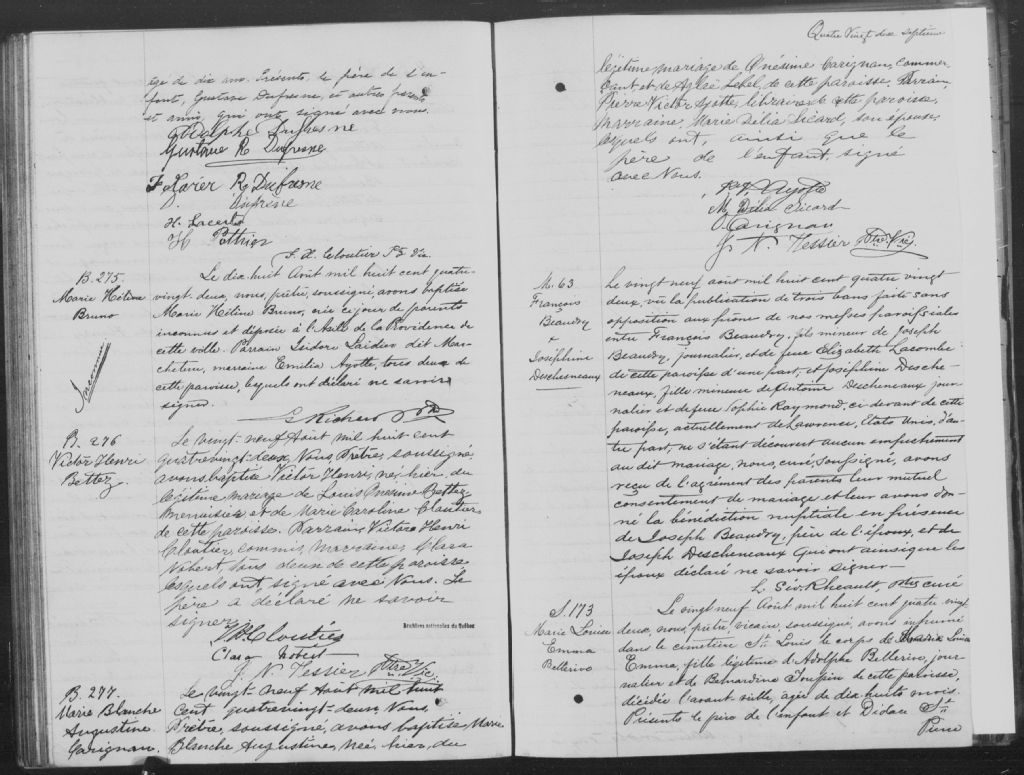 agé de dix ans. Présents, le père de l'en-
fant, Gustave Dufresne, et autres parents
et amis, qui ont signé avec nous.
Adolphe Dufresne
Gustave R Dufresne
F Xavier R Dufresne
Dufresne
H. Lacerte
H Pothier
F. X. Cloutier Ptre Vic.
B. 275
Marie Hélène
Bruno
Le dix huit Août mil huit cent quatre
vingt-deux, nous, prêtre, soussigné, avons baptisé
Marie Hélène Bruno, née ce jour de parents
inconnus et déposée à l'Asile de la Providence de
cette ville. Parrain Isidore dit Mar-
cheterre, marraine Emilia Ayotte, tous deux de
cette paroisse, lesquels ont déclaré ne savoir
signer.
Richard Ptre
B. 276
Victor Henri
Bettez
Le vingt-neuf Août mil huit cent
quatrevingt-deux, Nous, Prêtre, soussigné,
avons baptisé Victor Henri, né, hier, du
légitime mariage de Louis Bettez
menuisier, et de Marie Caroline Cloutier
de cette paroisse. Parrain, Victor Henri
Cloutier, commis, Marraine, Clara
Nobert, tous deux de cette paroisse
lesquels ont, signé avec Nous. Le
père a déclaré ne savoir
signer.
Archives nationales du Québec
V H Cloutier
Clara Nobert
J. N. Tessier Ptre Vic.
B. 277.
Marie Blanche
Augustine
Carignan.
Le vingt-neuf Août mil huit
cent quatrevingt-deux, Nous
Prêtre, soussigné, avons baptisé, Marie
Blanche Augustine, Née, hier, du
Quatre Vingt dix septième
légitime mariage de Onésime Carignan, commer-
çant et de Aglaé Lebel, de cette paroisse. Parrain,
Pierre Victor Ayotte, libraire de cette paroisse.
Marraine, Marie Délia Sicard, son épouse,
lesquels ont, ainsi que le
père de l'enfant, signé
avec Nous.
P. V. Ayotte
M. Délia Sicard
O. Carignan
J. N. Tessier Ptre Vic.
M. 63
François
Beaudry
+
Joséphine
Descheneaux
Le vingt neuf août mil huit cent quatre vingt
deux, vû la publication de trois bans faite sans
opposition aux prônes de nos messes paroissiales
entre François Beaudry, fils mineur de Joseph
Beaudry, journalier, et de feue Elizabeth Lacombe
de cette paroisse d'une part, et Joséphine Desche-
neaux, fille mineure de Antoine Descheneaux jour-
nalier et de feue Sophie Raymond, ci devant de cette
paroisse, actuellement de Lawrence, Etats Unis, d'au-
tre part, ne s'étant découvert aucun empêchement
au dit mariage, nous, curé, soussigné, avons
reçu de l'agrément des parents leur mutuel
consentement de mariage et leur avons don-
né la bénédiction nuptiale en présence
de Joseph Beaudry, père de l'époux, et de
Joseph Descheneaux qui ont ainsi que les
époux déclaré ne savoir signer—
L. Sév. Rheault, Ptre curé
S. 173
Marie Louise
Emma
Bellerive
Le vingt neuf Août mil huit cent quatre vingt
deux, nous, prêtre, vicaire, soussigné, avons inhumé
dans le cimetière St. Louis le corps de Marie Louise
Emma, fille légitime d'Adolphe Bellerive, jour-
nalier et de Bernardine Toupin de cette paroisse,
décédée l'avant-veille, agée de dix huits mois.
Présents le père de l'enfant et Didace St
Pierre